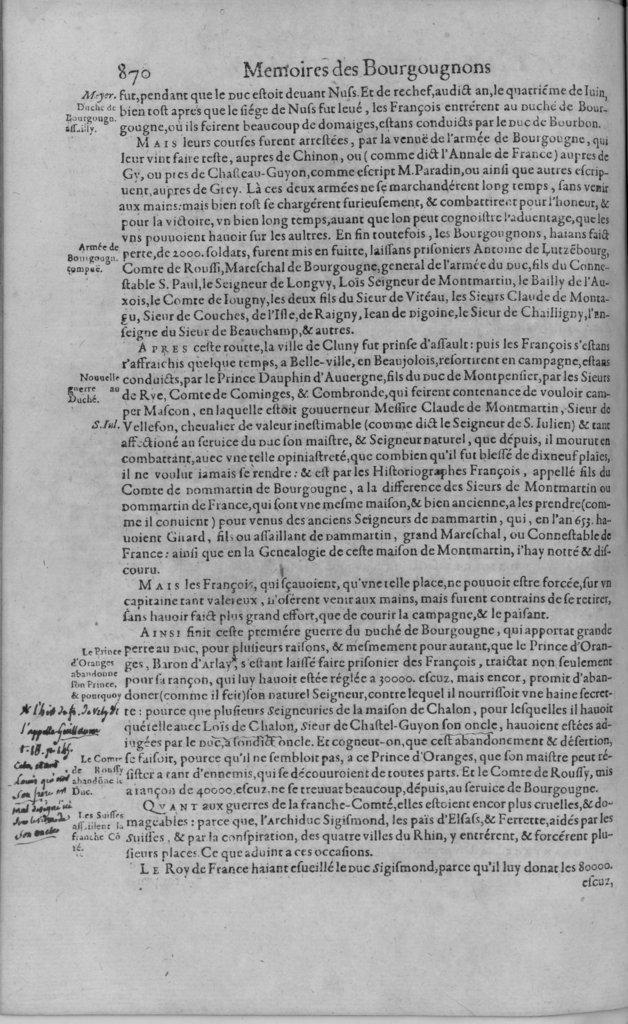 870 Memoires des Bourgougnons
Meyer. fut,pendant que le Duc estoit deuant Nuss. Et de rechef,audict an,le quatriéme de Iuin,
Duché de
Bourgougn.
assailly.
bien tost apres que le siége de Nuss fut leué, les François entrérent au Duché de Bour-
gougne,où ils feirent beaucoup de domaiges,estans conduicts par le Duc de Bourbon.
MAIS leurs courses furent arrestées, par la venuë de l'armée de Bourgougne, qui
leur vint faire teste, aupres de Chinon, ou (comme dict l'Annale de France) aupres de
Gy, ou pres de Chasteau-Guyon,comme escript M.Paradin,ou ainsi que autres escrip-
uent,aupres de Grey. Là ces deux armées ne se marchandérent long temps, sans venir
aux mains:mais bien tost se chargérent furieusement, & combattirent pour l'honeur, &
pour la victoire, vn bien long temps,auant que lon peut cognoistre l'aduentage,que les
vns pouuoient hauoir sur les aultres. En fin toutefois, les Bourgougnons, haians faict
Armée de
Bourgougn.
rompuë.
perte,de 2000.soldats, furent mis en fuitte, laissans prisoniers Antoine de Lutzēbourg,
Comte de Roussi,Mareschal de Bourgougne,general de l'armée du Duc,fils du Conne-
stable S. Paul,le Seigneur de Longvy, Loïs Seigneur de Montmartin, le Bailly de l'Au-
xois,le Comte de Iougny,les deux fils du Sieur de Vitéau, les Sieurs Claude de Monta-
gu, Sieur de Couches, de l'Isle,de Raigny, Iean de Digoine,le Sieur de Chailligny,l'en-
seigne du Sieur de Beauchamp,& autres.
APRES ceste routte,la ville de Cluny fut prinse d'assault: puis les François s'estans
r'affraichis quelque temps, a Belle-ville, en Beaujolois,resortirent en campagne,estans
Nouuelle
guerre au
Duché.
conduicts,par le Prince Dauphin d'Auuergne,fils du Duc de Montpensier,par les Sieurs
de Rye, Comte de Cominges, & Combronde,qui feirent contenance de vouloir cam-
per Mascon, en laquelle estoit gouuerneur Messire Claude de Montmartin, Sieur de
S.Iul. Vellefon, cheualier de valeur inestimable (comme dict le Seigneur de S. Iulien) & tant
affectioné au seruice du Duc son maistre, & Seigneur naturel, que dépuis, il mourut en
combattant,auec vne telle opiniastreté,que combien qu'il fut blessé de dixneuf plaies,
il ne voulut iamais se rendre: & est par les Historiographes François, appellé fils du
Comte de Dommartin de Bourgougne, a la difference des Sieurs de Montmartin ou
Dommartin de France,qui sont vne mesme maison,& bien ancienne,a les prendre(com-
me il conuient) pour venus des anciens Seigneurs de Dammartin, qui, en l'an 653. ha-
uoient Girard, fils ou assaillant de Dammartin, grand Mareschal, ou Connestable de
France: ainsi que en la Genealogie de ceste maison de Montmartin, i'hay notté & dis-
couru.
MAIS les François, qui sçauoient, qu'vne telle place,ne pouuoit estre forcée,sur vn
capitaine tant valereux, n'osérent venir aux mains, mais furent contrains de se retirer,
sans hauoir faict plus grand effort,que de courir la campagne,& le païsant.
AINSI finit ceste premiére guerre du Duché de Bourgougne, qui apportat grande
Le Prince
d'Oranges
abandonne
son Prince,
& pourquoy
perte au Duc, pour plusieurs raisons, & mesmement pour autant,que le Prince d'Oran-
ges, Baron d'Arlay, s'estant laissé faire prisonier des François, traictat non seulement
pour sa rançon, qui luy hauoit estée réglée a 30000. escuz, mais encor, promit d'aban-
doner(comme il feit)son naturel Seigneur,contre lequel il nourrissoit vne haine secret-
te: pource que plusieurs Seigneuries de la maison de Chalon, pour lesquelles il hauoit
quérelle auec Loïs de Chalon, Sieur de Chastel-Guyon son oncle, hauoient estées ad-
iugées par le Duc,a sondict oncle. Et cogneut-on,que cest abandonnement & désertion,
l'appelle Guillaume
son frere
son oncle
Le Comte
de Roussy
abandōne le
Duc.
se faisoit, pource qu'il ne sembloit pas, a ce Prince d'Oranges, que son maistre peut ré-
sister a tant d'ennemis,qui se découuroient de toutes parts. Et le Comte de Roussy, mis
a rançon de 40000.escuz.ne se treuuat beaucoup,dépuis,au seruice de Bourgougne.
QVANT aux guerres de la franche-Comté,elles estoient encor plus cruelles,& do-
Les Suisses
assaillent la
franche Cō
té.
mageables: parce que, l'Archiduc Sigismond, les païs d'Elsass,& Ferrette,aidés par les
Suisses, & par la conspiration, des quatre villes du Rhin, y entrérent, & forcérent plu-
sieurs places. Ce que aduint a ces occasions.
LE Roy de France haiant esueillé le Duc Sigismond,parce qu'il luy donat les 80000.
escuz,